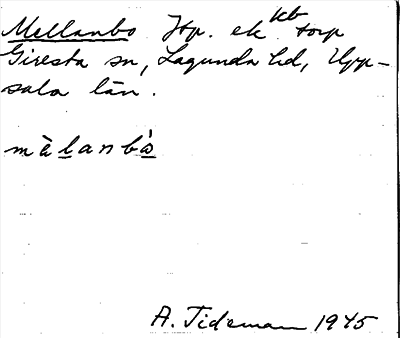 Mellanbo Jtp. ek kb torp
Giresta sn, Lagunda hd, Upp-
sala län.
mèlanbò
A. Tideman 1945